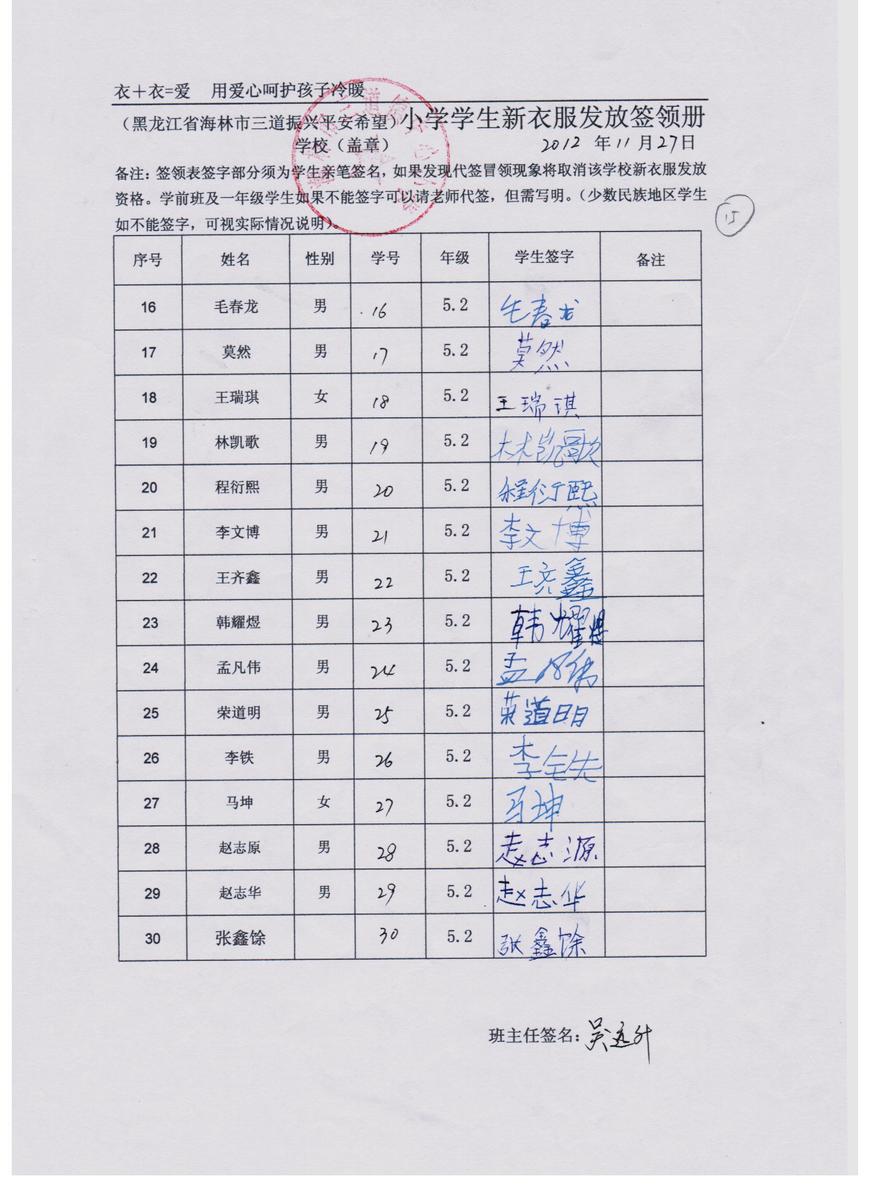 衣＋衣=爱　用爱心呵护孩子冷暖
（黑龙江省海林市三道振兴平安希望）小学学生新衣服发放签领册
学校（盖章） 2012 年 11 月 27 日
备注：签领表签字部分须为学生亲笔签名，如果发现代签冒领现象将取消该学校新衣服发放
资格。学前班及一年级学生如果不能签字可以请老师代签，但需写明。（少数民族地区学生
如不能签字，可视实际情况说明）。
15
序号 姓名 性别 学号 年级 学生签字 备注
16 毛春龙 男 16 5.2 毛春龙
17 莫然 男 17 5.2 莫然
18 王瑞琪 女 18 5.2 王瑞琪
19 林凯歌 男 19 5.2 林凯歌
20 程衍熙 男 20 5.2 程衍熙
21 李文博 男 21 5.2 李文博
22 王齐鑫 男 22 5.2 王齐鑫
23 韩耀煜 男 23 5.2 韩耀煜
24 孟凡伟 男 24 5.2 孟凡伟
25 荣道明 男 25 5.2 荣道明
26 李铁 男 26 5.2 李铁
27 马坤 女 27 5.2 马坤
28 赵志原 男 28 5.2 赵志源
29 赵志华 男 29 5.2 赵志华
30 张鑫馀 30 5.2 张鑫馀
班主任签名：吴远升